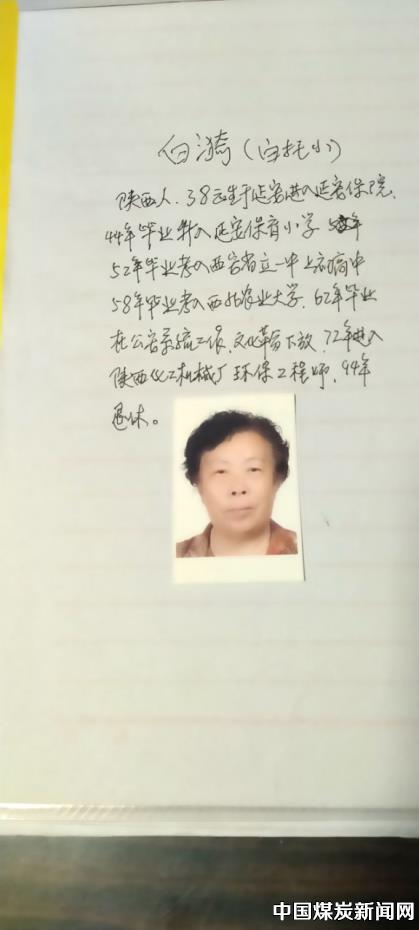 白漪（白托小）
陕西人，38元生于延安进入延安保院，
44年毕业升入延安保育小学
52年毕业考入西安省立一中上初高中
58年毕业考入西北农业大学，62年毕业
在公安系统工作，文化革命下放，72年进入
陕西化工机械厂环保工程师，94年
退休。
中国煤炭新闻网